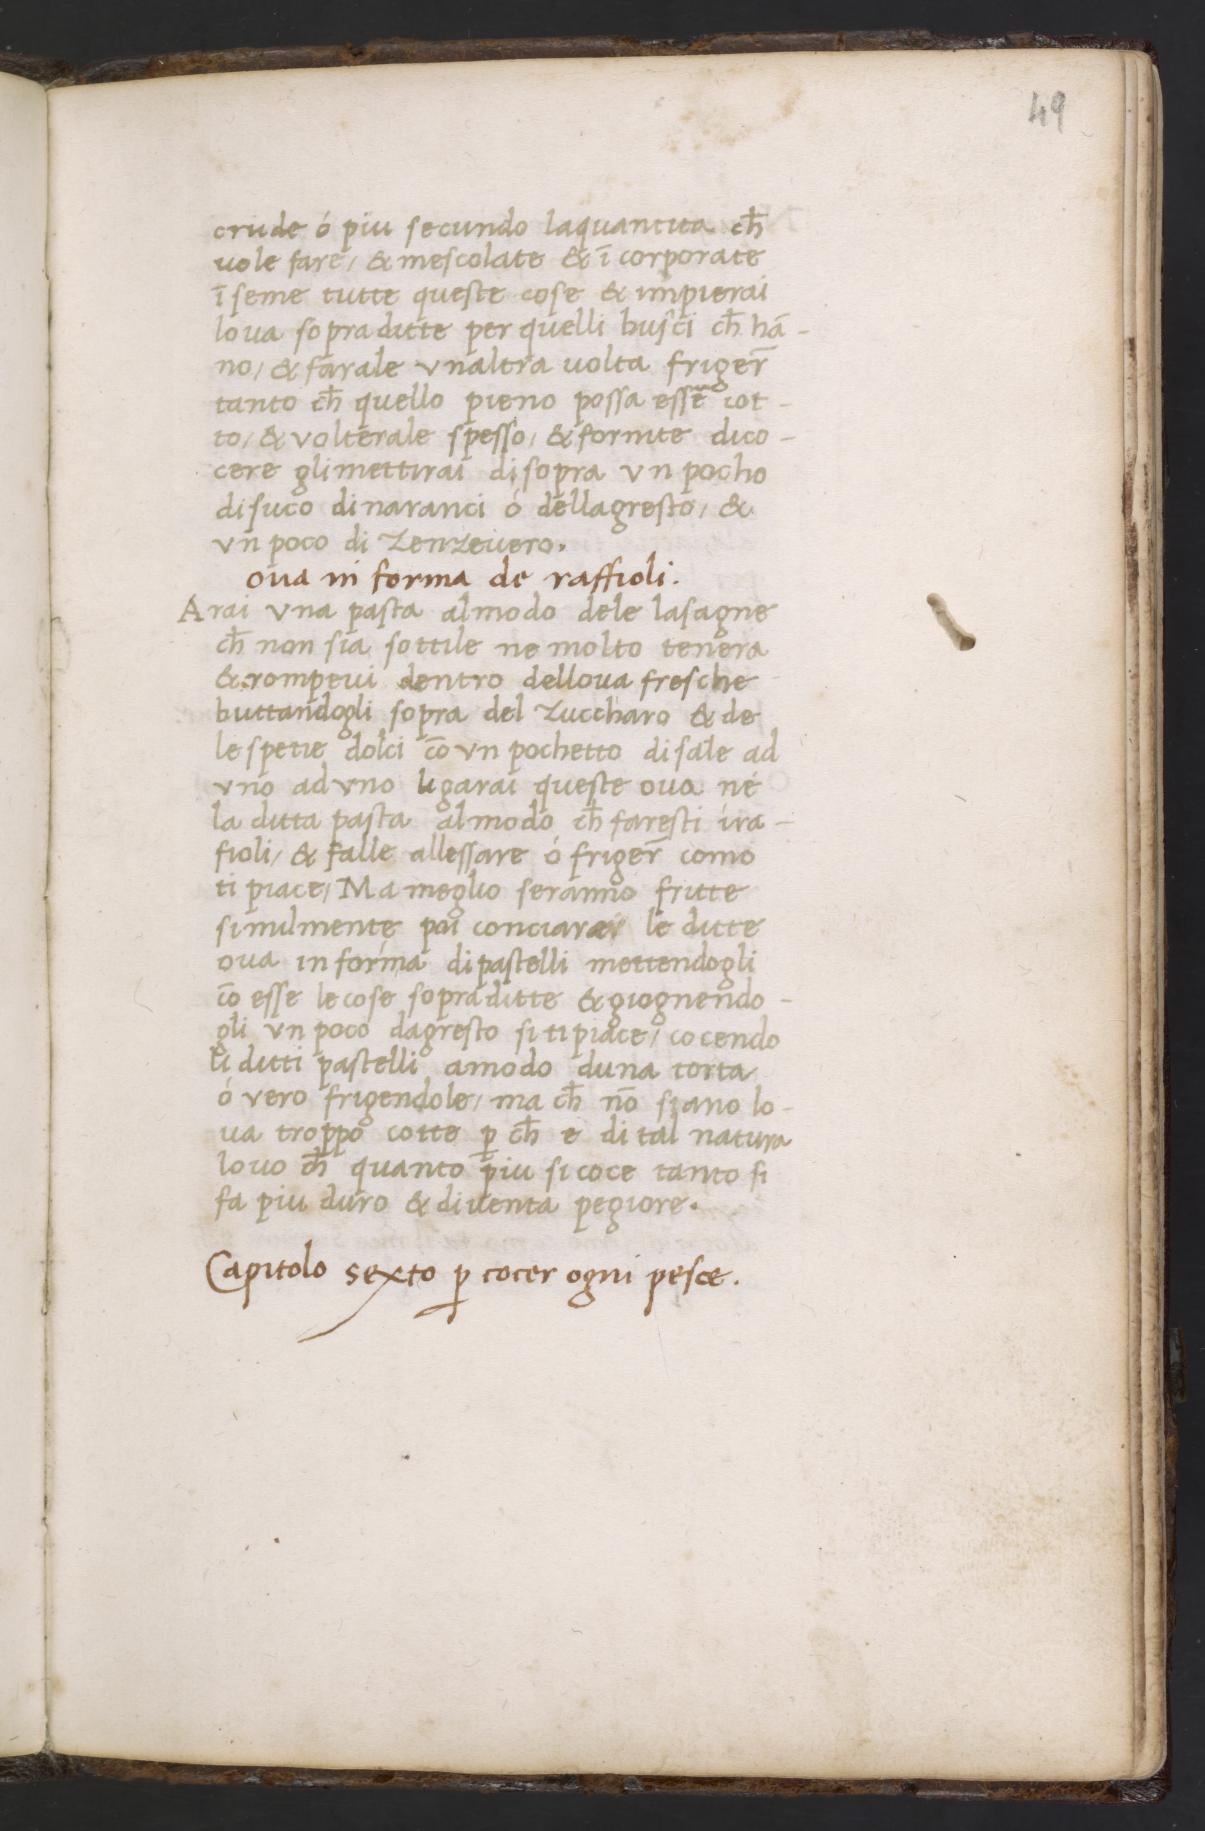 49
crude ó piu secundo laquantita ch̄
uole fare, & mescolate & ī corporate
ī seme tutte queste cose & impierai
lova sopra ditte per quelli busci ch̄ hā-
no, & farale vnaltra uolta friger̄
tanto ch̄ quello pieno possa esser̄ cot-
to, & volterale spesso, & fornite dico-
cere gli mettirai di sopra vn pocho
di suco di naranci ó dellagresto, &
vn poco di zenzeuero.
ova in forma de raffioli.
Arai vna pasta almodo dele lasagne
ch̄ non sia sottile ne molto tenera
& rompeui dentro dellova fresche
buttandogli sopra del zuccharo & de
le spetie dolci cō vn pochetto di sale ad
vno ad vno ligarai queste ova ne
la ditta pasta almodo ch̄ faresti i ra-
fioli, & falle allessare ó friger̄ como
ti piace, Ma meglio seranno fritte
similmente poi conciarai le ditte
ova in forma di pastelli mettendogli
cō esse le cose sopra ditte & giognendo-
gli vn poco dagresto si ti piace, cocendo
li ditti pastelli amodo duna torta
ó vero frigendole, ma ch̄ nō siano lo-
va troppo cotte ꝑ ch̄ e di tal natura
lovo ch̄ quanto piu si coce tanto si
fa piu duro & diuenta pegiore.
Capitolo sexto ꝑ cocer ogni pesce.